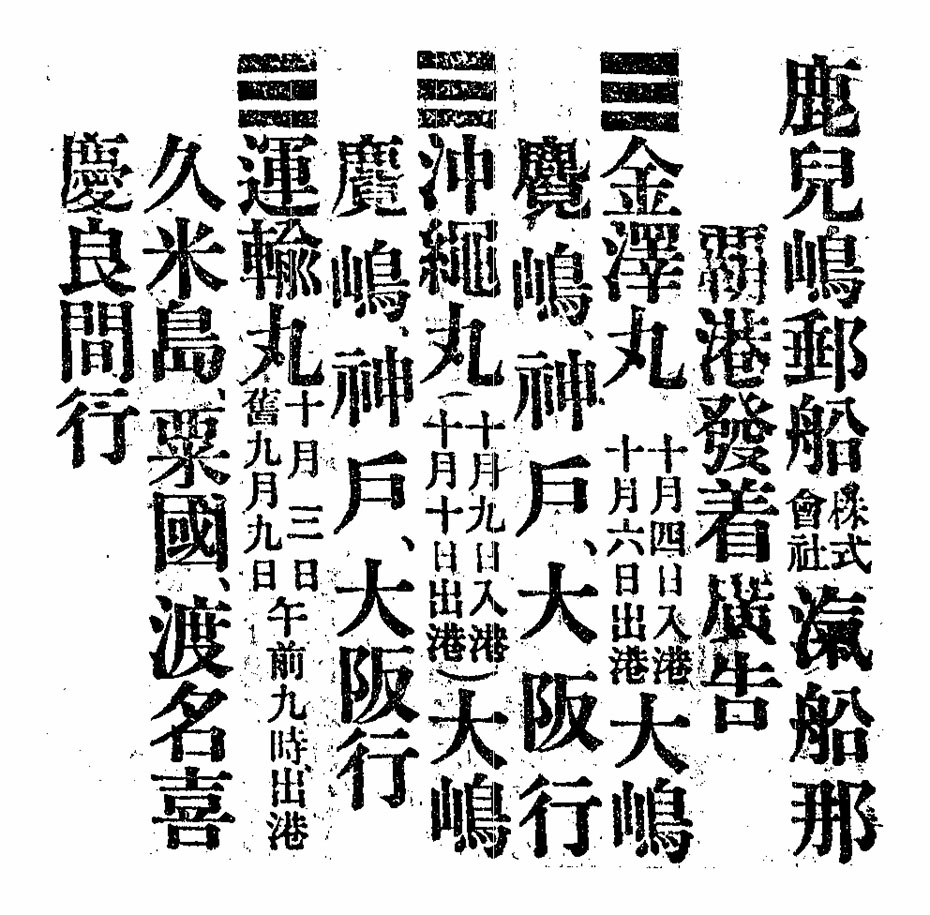 鹿兒嶋郵船株式會社滊船那
覇港發着廣告
☰金澤丸 十月四日入港 十月六日出港 大嶋
麑嶋、神戶、大阪行
☰沖繩丸(十月九日入港 十月十日出港)大嶋
麑嶋、神戶、大阪行
☰運輸丸 十月三日 舊九月九日 午前九時出港
久米島、粟國、渡名喜
慶良間行